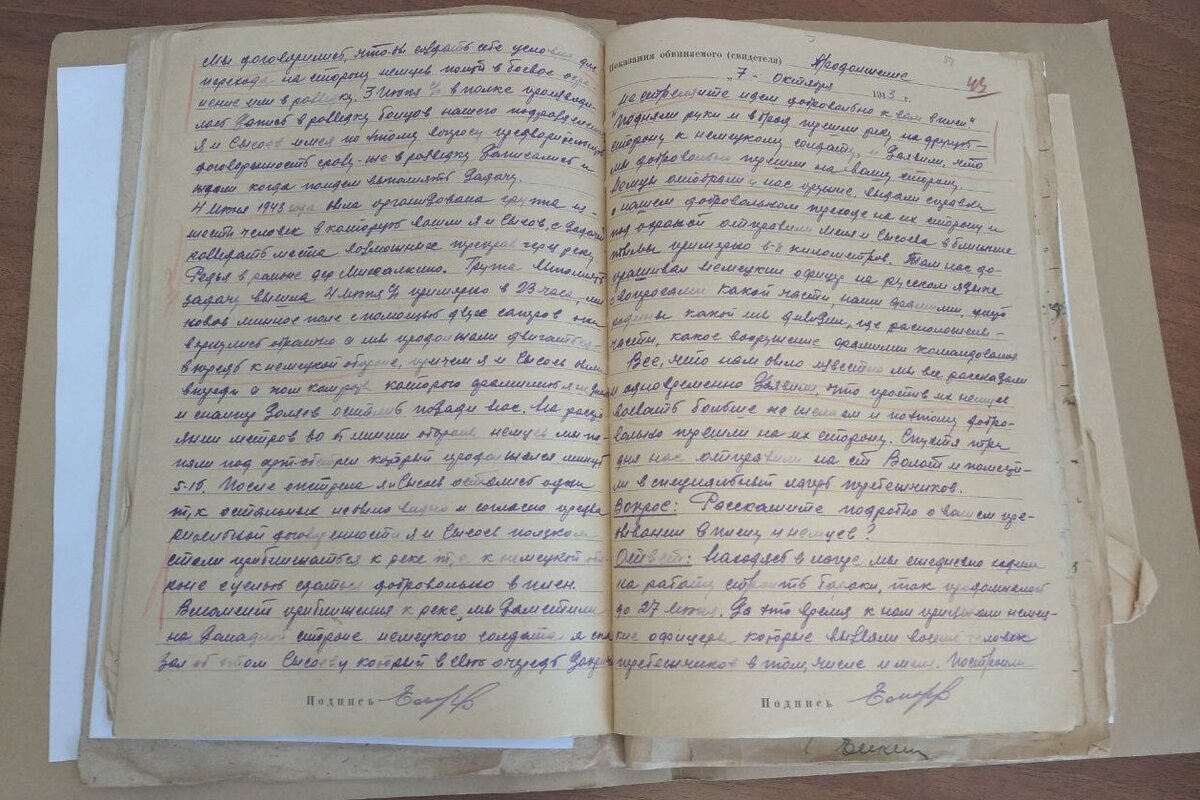 Мы договорились, чтобы создать себе условия для
перехода на сторону немцев пойти в боевое охра-
нение или в разведку. 3 июня с/г в полке производи-
лась запись в разведку бойцов нашего подразделения
я и Сысоев имея по этому вопросу предварительную
договоренность сразу-же в разведку записались и
ждали когда пойдем выполнять задачу.
4 июня 1943 года была организована группа из
шести человек в которую вошли я и Сысоев, с задачей
разведать места возможные переправ через реку
Редья в районе дер Михалкино. Группа выполнять
задачу вышла 4 июня с/г примерно в 23 часа, ми-
новав минное поле с помощью двух саперов они
вернулись обратно а мы продолжали двигаться
вперед к немецкой обороне, причем я и Сысоев были
впереди а пом ком роты которого фамилию я не знаю
и еще бойцов остались позади нас. На расстоя-
нии метров 50 от линии обороны немцев мы по-
пали под арт-обстрел который продолжался минут
5-10. После обстрела я и Сысоев остались одни
т,к остальных не было видно и согласно предва-
рительной договоренности я и Сысоев ползком
стали приближаться к реке т,е, к немецкой обо-
роне с целью сдаться добровольно в плен.
В момент приближения к реке, мы заметили
на западной стороне немецкого солдата, я ска-
зал об этом Сысоеву который в свою очередь закричал
Подпись
Показания обвиняемого (свидетеля) Продолжение
„7" октября 1943 г.
43
"не стреляйте идем добровольно к вам в плен."
Подняли руки и вброд перешли реку на другую
сторону к немецкому солдату, и заявили, что
мы добровольно перешли на вашу сторону.
Немцы отобрали у нас оружие, выдали справки
о нашем добровольном переходе на их сторону и
под охраной отправили меня и Сысоева в ближние
тылы примерно 6-8 километров. Там нас до-
прашивал немецкий офицер на русском языке
с вопросами какой части, наши фамилии,
какой мы дивизии, где расположены
части, какое вооружение фамилии командования
Все, что нам было известно мы все рассказали
и одновременно заявили, что против их немцев
воевать больше не желаем и поэтому добро-
вольно перешли на их сторону. Спустя три
дня нас отправили на ст Волот и помести-
ли в специальный лагерь перебежчиков.
Вопрос: Расскажите подробно о вашем пре-
бывании в плену у немцев?
Ответ: Находясь в лагере мы ежедневно ходили
на работы строить бараки, так продолжалось
до 27 июня. За это время к нам приезжали немец-
кие офицеры которые вызвали восемь человек
перебежчиков в том, числе и меня. Построили
Подпись